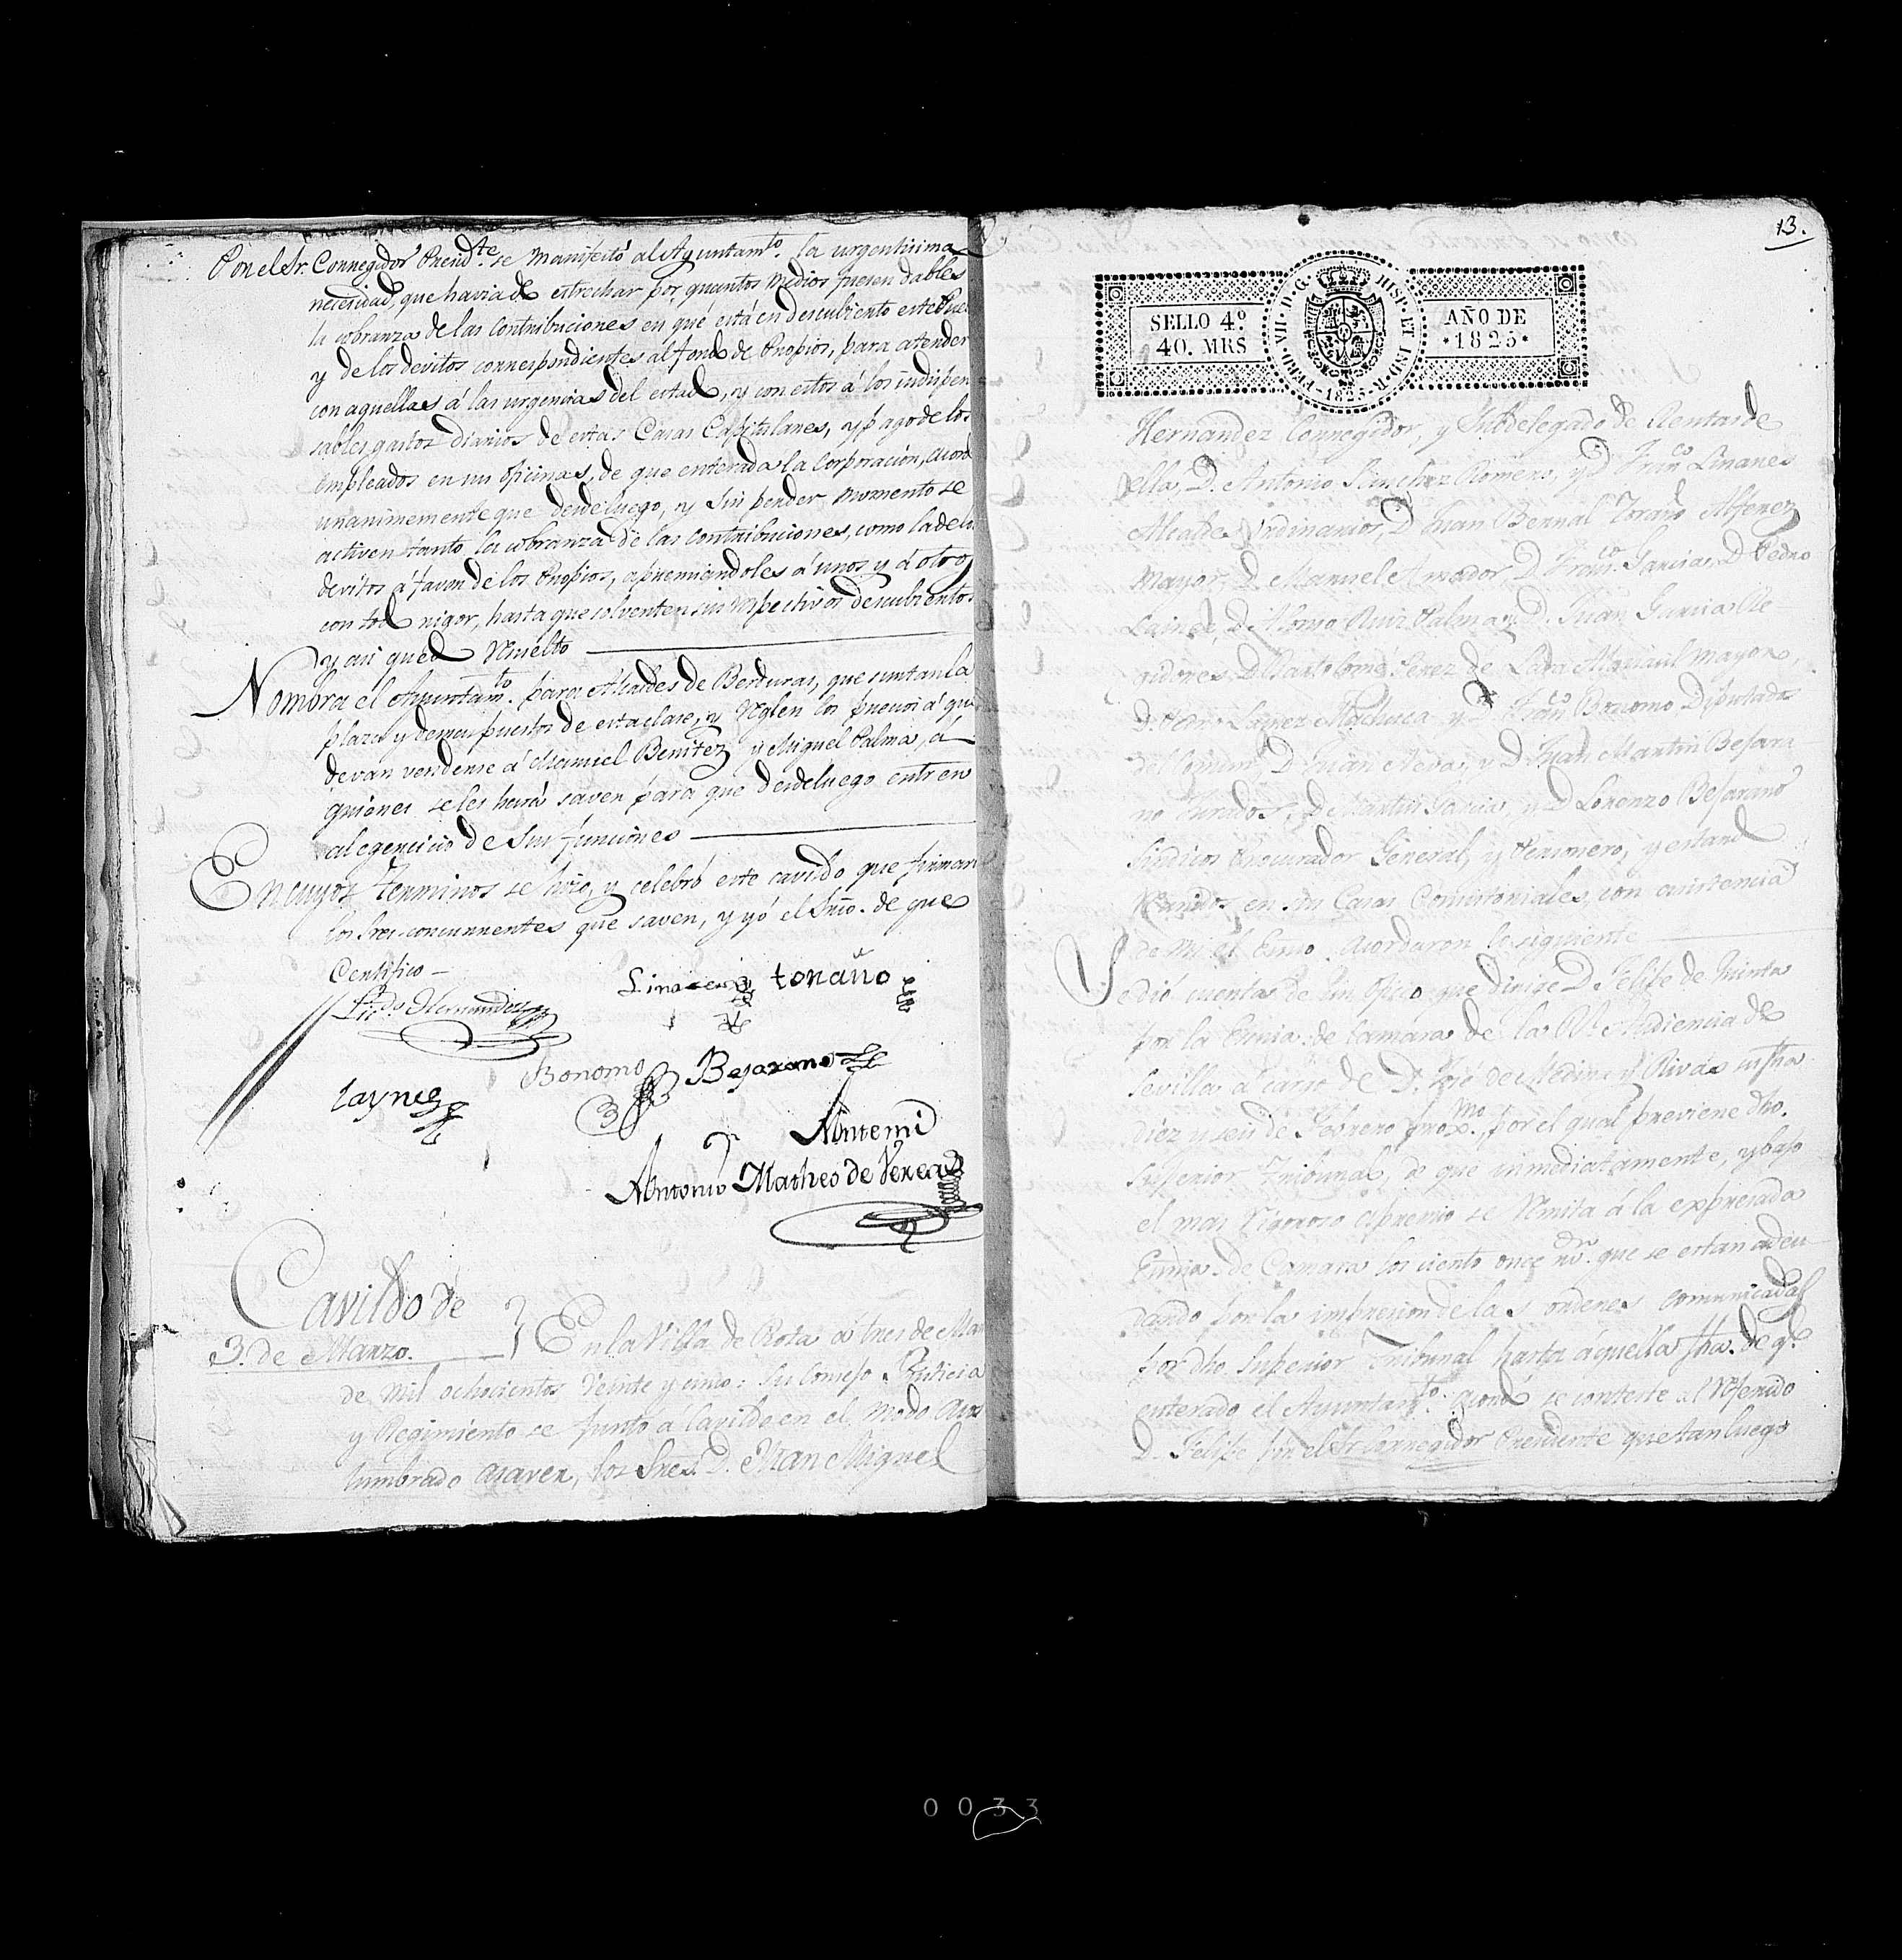 Por el Sr. Corregidor Presid.te se manifestó al Ayuntam.to la urgentisima
necesidad, que havia de estrechar por quantos medios fueren dables
la cobranza de las contribuciones en que está en descubierto este Pue
y de los devitos correspondientes al fondo de Propios, para atender
con aquellas á las urgencias del estado, y con estos á los indispen
sables gastos diarios de estas Casas Capitulares, y pago de los
empleados en sus oficinas, de que enterada la Corporacion, acord
unanimemente que desde luego, y sin perder momento se
activen tanto la cobranza de las contribuciones, como la de lo
devitos á favor de los Propios, apremiandoles á unos y á otros
con todo rigor, hasta que solventen sus respectivos descubiertos
y asi quedó resuelto
Nombra el Ayuntam.to para Alcaldes de Berduras, que surtan la
plaza y demas puestos de esta clase, y reglen los precios á que
devan venderse á Manuel Benitez y Miguel Palma, a
quienes se les hará saver para que desde luego entren
al egercicio de sus funciones
En cuyos terminos se hizo, y celebró este cavildo que firman
los Sres. concurrentes que saven, y yó el Srio. de que
Certifico
Lic.do Hernandez
Linares
toraño
Laynez
Bonomo
Bejarano
Antemi
Antonio Matheo de Verea
Cavildo de
3. de Marzo.
En la Villa de Rota a tres de Mar
de mil ochocientos veinte y cinco: Su Consejo Justicia
y Regimiento se juntó á Cavildo en el modo acos
tumbrado asaver, los Sres. D. Juan Miguel
13.
SELLO 4º
40. MRS
FERD. VII. D. G. HISP. ET IND. R.
1825
AÑO DE
1825
Hernandez Corregidor, y Subdelegado de Rentas de
ella, D. Antonio Sanchez Romero, y D. Fran.co Linares
Alcaldes Ordinarios, D. Juan Bernal Toraño Alferez
mayor, D. Manuel Amador, D. Fran.co Garcia, D. Pedro
Lainez, D. Alonso Ruiz Palma y D. Juan Garcia Re
gidores, D. Bartolomé Perez de Lada Alguacil mayor,
D. Lopez Machuca, y D. Fran.co Bonomo Diputados
del Comun, D. Juan y D. Juan Martin Bejara
no Jurados, D. Martin Garcia y D. Lorenzo Bejarano
Sindicos Procurador General, y Personero, y estando
reunidos en sus Casas Consistoriales, con asistencia
de mi el Essno. acordaron lo siguiente
Se dió cuenta de un oficio que dirige D. Felipe de Quinta
por la Essnia. de Camara de la Rl. Audiencia de
Sevilla al cargo de D. José de Medina y Rivas su fha
diez y seis de Febrero prox.mo, por el qual previene dho.
superior Tribunal, de que inmediatamente, y bajo
el mas rigoroso apremio se remita á la expresada
Essnia. de Camara los ciento once rs. vn. que se estan adeu
dando por la impresion de las ordenes comunicadas
por dho superior Tribunal hasta aquella fha. de q.e
enterado el Ayuntam.to acordó se conteste al referido
D. Felipe por el Sr. Corregidor Presidente que tan luego
0033